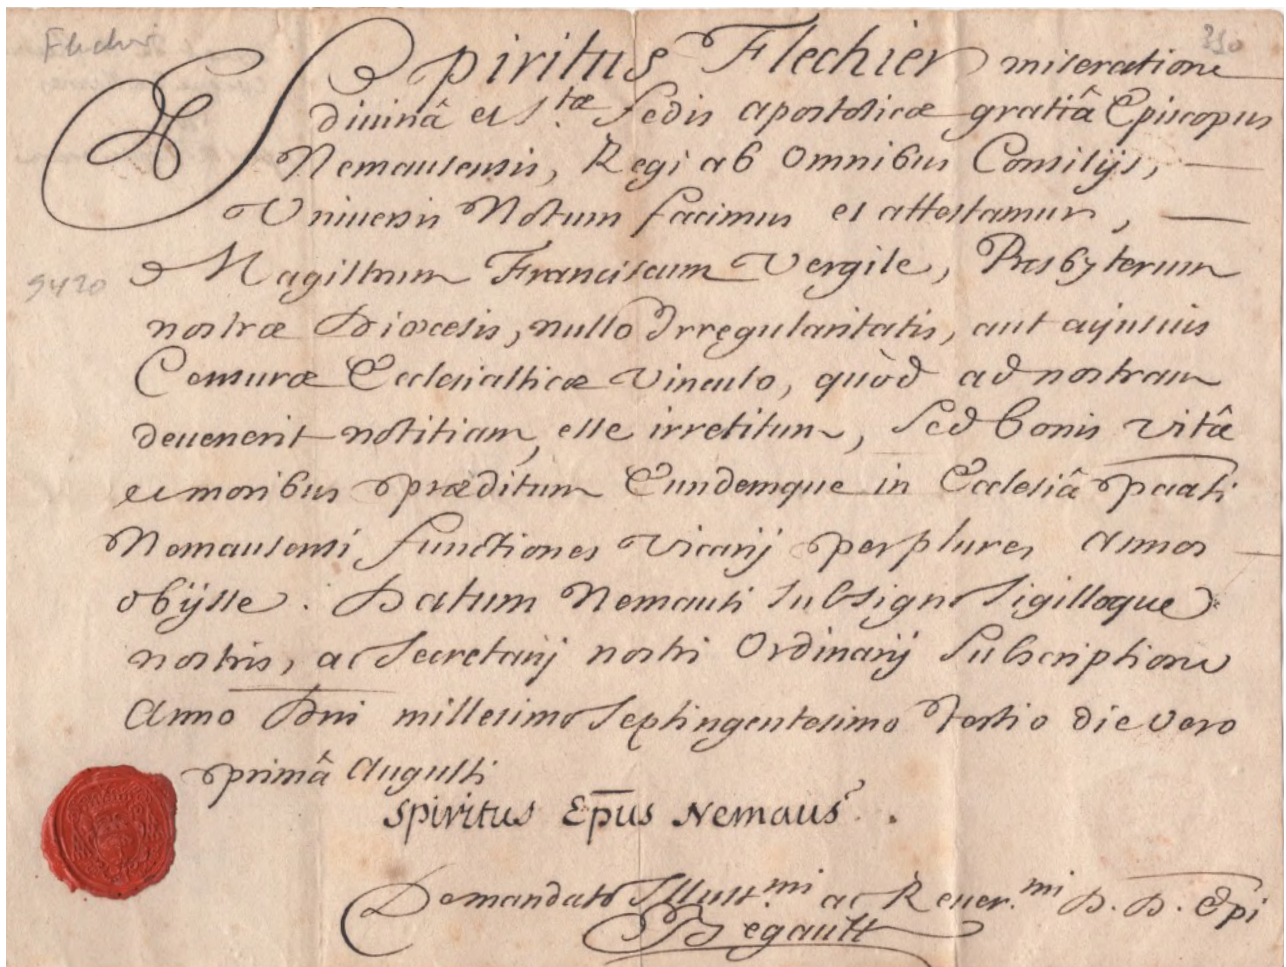 Flechier
310
Spiritus Flechier miseratione
divinâ et S.tæ Sedis apostolicæ gratiâ Episcopus
Nemausensis, Regi ab Omnibus Consilijs,
Universis Notum facimus et attestamur,
Magistrum Franciscum Vergile, Presbyterum
nostræ Diœcesis, nullo Irregularitatis, aut cujusuis
Censuræ Ecclesiasticæ Vinculo, quòd ad nostram
devenerit notitiam, esse irretitum, sed bonis vitâ
et moribus præditum Eundemque in Ecclesiâ
9420
Nemausensi functiones Vicarij per plures Annos
obijsse. Datum Nemausi sub signo Sigilloque
nostris, ac Secretarij nostri Ordinarij Subscriptione
Anno Dni millesimo Septingentesimo tertio die vero
primâ Augusti
Spiritus Epus Nemaus.
De mandato Illust.mi ac Rever.mi D. D. Epi
Begault